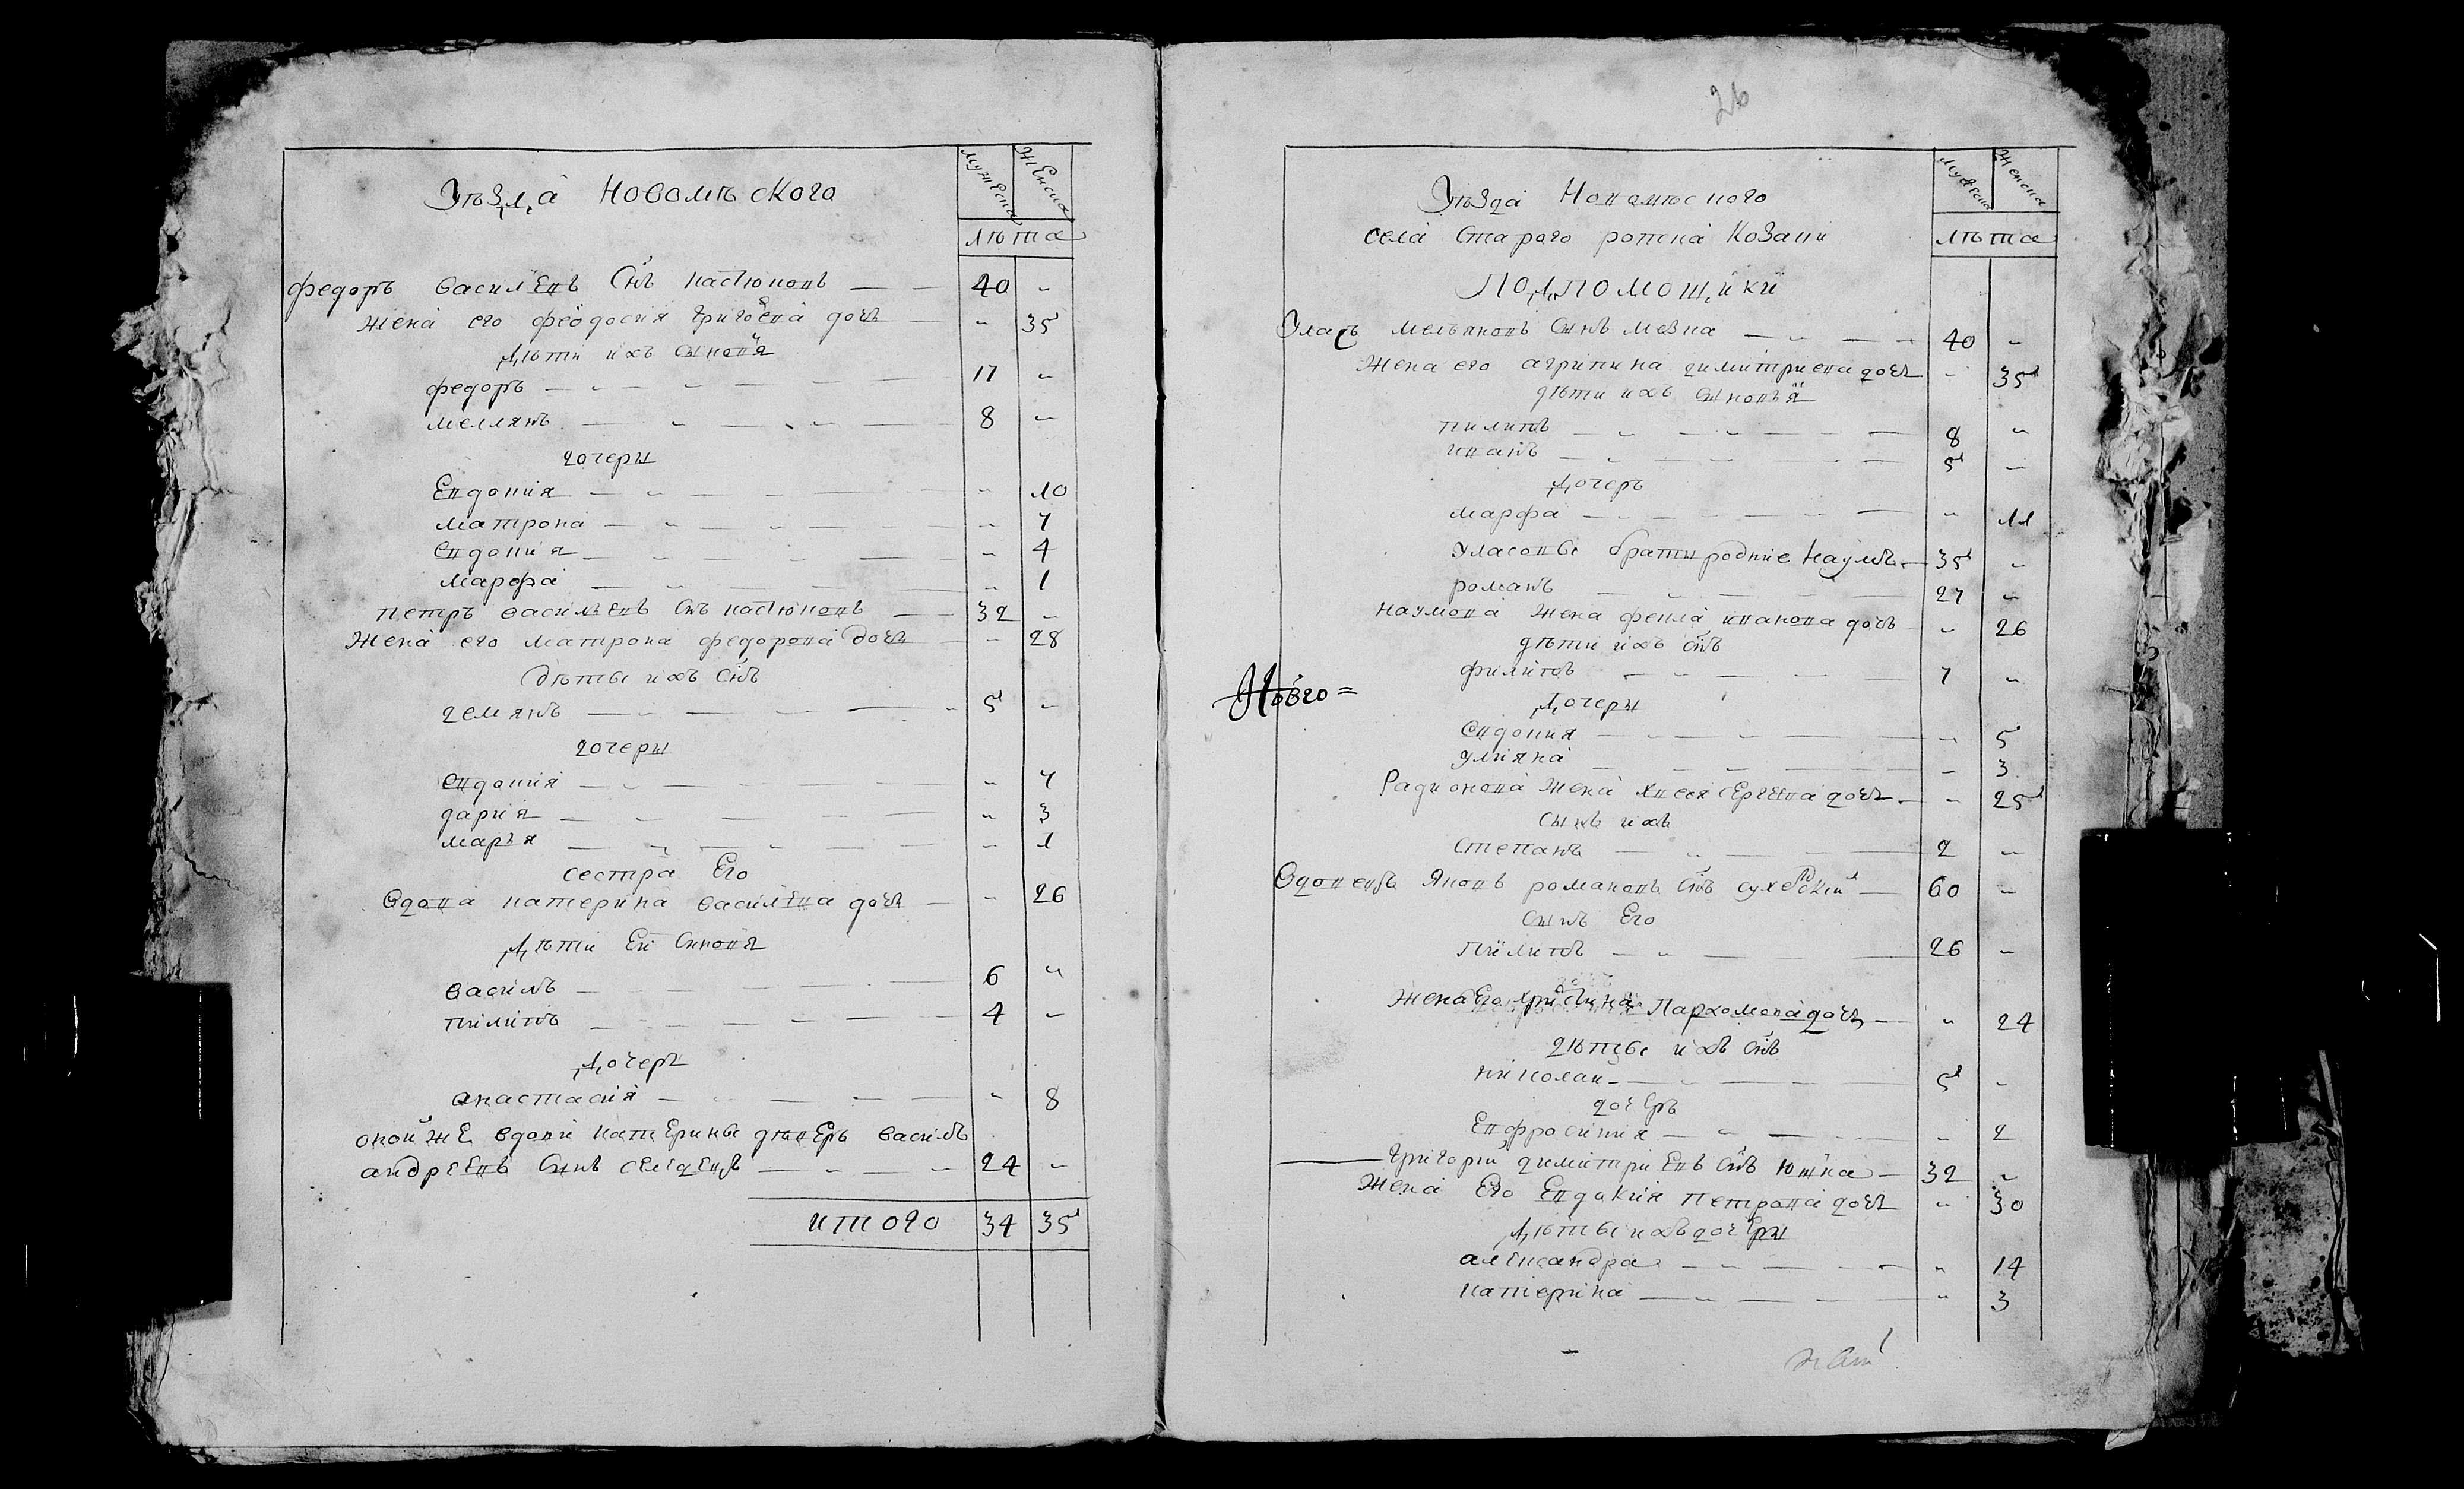 Уѣзда Новомѣского
мужеска
женска
лѣта
федоръ василевъ Снъ кастюковъ 40
жена его феодосия григоева дочь 35
дѣти ихъ сыновя
федоръ 17
мелянъ 8
дочеры
Евдокия 10
матрона 7
Евдокия 4
марфа 1
петръ василевъ Снъ кастюковъ 32
жена его матрона федорова дочь 28
дѣты ихъ Снъ
демянъ 5
дочеры
евдокия 7
дария 3
маръя 1
сестра Его
вдова катерина василева дочь 26
дѣти Ей Синовя
василь 6
пилипъ 4
дочеръ
анастасия 8
оной же вдови катерины дѣверъ василъ
андреевъ Сынъ селедцевъ 24
итого 34 35
26
Уѣзда Новомѣского
села Старого ропска Козаки
мужеска
женска
лѣта
Подпомощики
Уласъ мельяновъ сынъ мезка 40
жена его агрипина димитриева дочь 35
дѣти ихъ сыновъя
пилипъ 8
иванъ 5
дочеръ
марфа 11
уласовы браты родние наумъ 35
романъ 27
наумова жена фекла иванова дочъ 26
дѣти ихъ Снъ
филипъ 7
Нового=
дочеры
Евдокия 5
улияна 3
Радионова жена сергеева дочь 25
сынъ ихъ
степанъ 2
Вдовецъ Яковъ романовъ Снъ 60
сынъ Его
пилипъ 26
жена Его христина Пархомова дочъ 24
дѣты ихъ Снъ
николай 5
дочеръ
Евфросиния 2
григорий димитриевъ Снъ юшка 32
жена Его Евдокия петрова дочь 30
дѣты ихъ дочеры
александра 14
катерина 3